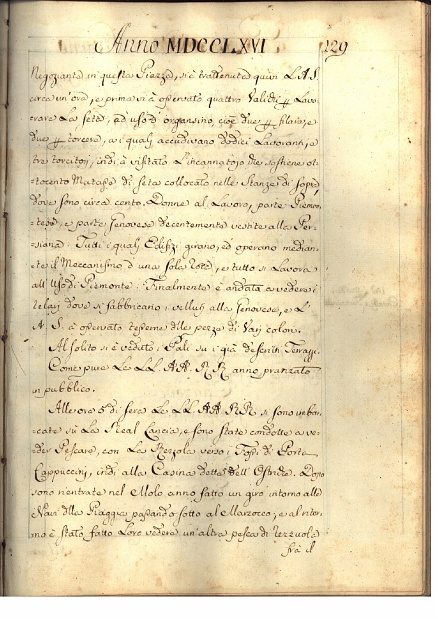 Anno MDCCLXVI 129
Negoziante in questa Piazza, si è trattenuta quivi L'A.S.
circa un'ora, e prima vi à osservato quattro Validi p Lavo-
rare La seta, ad uso d'organsino, cioè due p filare, e
due p torcere, a i quali accudivano dodici Lavoranti, e
tre torcitori, indi à visitato L'incannatojo che sostiene ot-
tocento Matasse di seta collocato nelle Stanze di sopra
dove sono circa cento Donne al Lavoro, parte Piemon-
tesi, e parte Genovesi decentemente vestite alla Per-
siana. Tutti i quali Edifizi girano, ed operano median-
te il Meccanismo d'una sola Rota, e tutto si Lavora
all'Uso di Piemonte. Finalmente è andata a vedere i
telaj dove si fabbricano i velluti alla Genovese, e L'
A. S. à osservato tesserne delle pezze di Varj colori.
Al solito si è veduto i Pali su i già descritti Terrazzi.
Come pure Le LL. AA. RR. anno pranzato
in pubblico.
Alle ore di sera Le LL. AA. RR. si sono imbar-
cate sù La Real Lancia, e sono state condotte a ve-
der Pescare, con La Rezzola verso i Fossi di Porta
Cappuccini, indi alla Casina detta dell'Ostriche. Dopo
sono rientrate nel Molo anno fatto un giro intorno alle
Navi della Piaggia passando sotto al Marzocco, e al ritor-
no è stato fatto Loro vedere un'altra pesca di Rezzuola
frà il